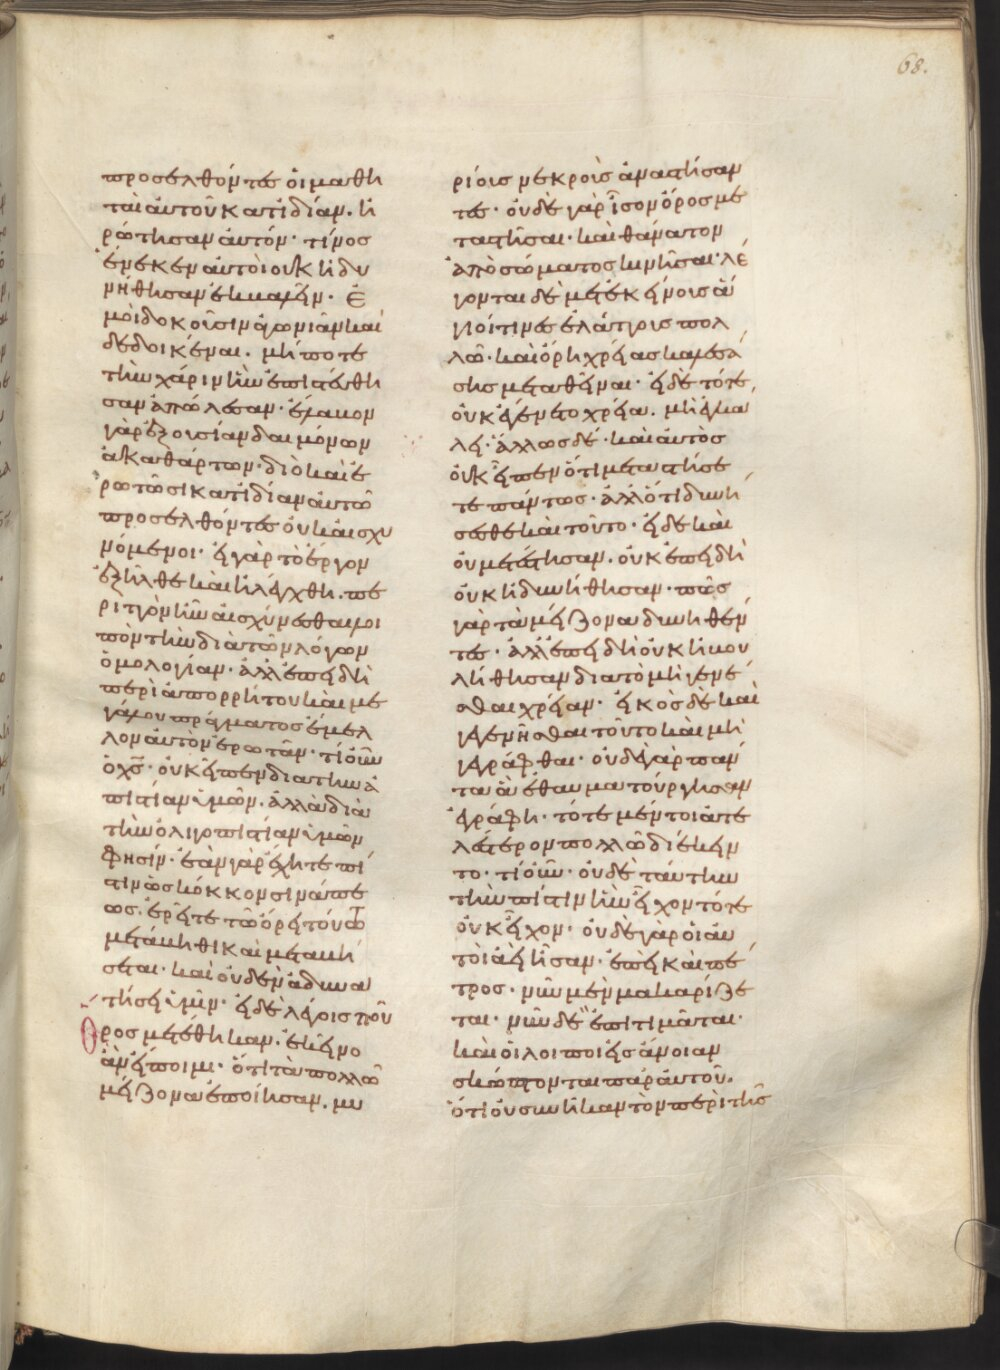 68.
προσελθόντες οἱ μαθη
ταὶ αὐτοῦ κατιδίαν. ἠ
ρώτησαν αὐτόν· τίνος
ἕνεκεν αὐτοὶ οὐκ ἠδυ
νήθησαν ἐκβαλεῖν· ἐ
μοὶ δοκοῦσιν ἀγωνιᾶν καὶ
δεδοικέναι. μήποτε
τὴν χάριν ἣν ἐπιστεύθη
σαν ἀπώλεσαν· ἔλαβον
γὰρ ἐξουσίαν δαιμόνων
ἀκαθάρτων· διὸ καὶ ἐ
ρωτῶσι κατιδίαν αὐτῶ
προσελθόντες οὐκ αἰσχυ
νόμενοι· εἰ γὰρ τὸ ἔργον
ἐξῆλθε καὶ ἠλέγχθη. πε
ριττὸν ἦν αἰσχύνεσθαι λοι
πὸν τὴν διὰ τῶν λόγων
ὁμολογίαν· ἀλλ' ἐπειδὴ
περὶ ἀπορρήτου καὶ με
γάλου πράγματος ἔμελ
λον αὐτὸν ἐρωτᾶν· τί οὖν
ὁ χς· οὐκ εἶπεν διὰ τὴν ἀ
πιστίαν ὑμῶν. ἀλλὰ διὰ
τὴν ὀλιγοπιστίαν ὑμῶν
φησίν· ἐὰν γὰρ ἔχητε πί
στιν ὡς κόκκον σινάπε
ως. ἐρεῖτε τῶ ὄρει τούτω
μετάβηθι καὶ μεταβή
σεται· καὶ οὐδὲν ἀδυνα
τήσει ὑμῖν· εἰ δὲ λέγοις ποῦ
ὄρος μετέθηκαν. ἐκεῖνο
ἂν εἴποιμι· ὅτι τὰ πολλῶ
μείζονα ἐποίησαν. μυ
ρίοις νεκροὺς ἀναστήσαν
τες· οὐδὲ γὰρ ἴσον ὄρος με
ταστῆσαι· καὶ θάνατον
ἀπὸ σώματος κινῆσαι· λέ
γονται δὲ μετ' ἐκείνοις ἅ
γιοί τινες ἐλάττοις πολ
λῶ· καὶ ὄρη χρείας καλεσά
σης μεταθεῖναι· εἰ δὲ τότε
οὐκ ἐγένετο χρεία. μὴ ἐγκά
λει· ἄλλως δέ· καὶ αὐτὸς
οὐκ εἶπεν ὅτι μεταστήσε
τε πάντως· ἀλλ' ὅτι δυνή
σεσθε καὶ τοῦτο· εἰ δὲ καὶ
οὐ μετέστησαν. οὐκ ἐπειδὴ
οὐκ ἠδυνήθησαν· πῶς
γὰρ τὰ μείζονα δυνηθέν
τες· ἀλλ' ἐπειδὴ οὐκ ἠβου
λήθησαν διὰ τὸ μὴ γενέ
σθαι χρείαν· εἰκὸς δὲ καὶ
γενέσθαι τοῦτο καὶ μὴ
γεγράφθαι· οὐδὲ γὰρ πάν
τα ἃ ἐθαυματούργησαν
ἐγράφη· τότε μέντοι ἀτε
λέστερον πολλῶ διέκειν
το· τί οὖν· οὐδὲ ταύτην
τὴν πίστιν ἣν εἶχον τότε
οὐκ εἶχον· οὐδὲ γὰρ οἱ αὐ
τοὶ ἀεὶ ἦσαν· ἐπεὶ καὶ πέ
τρος· νῦν μὲν μακαρίζε
ται· νῦν δὲ ἐπιτιμᾶται·
καὶ οἱ λοιποὶ εἰς ἄνοιαν
σκώπτονται παρ' αὐτοῦ.
ὅτι οὐ συνῆκαν τὸν περὶ τῆς